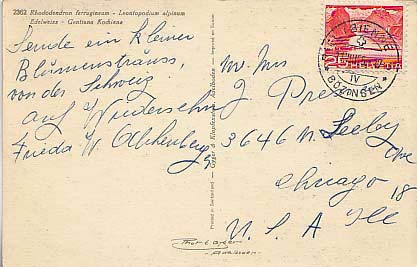 2362 Rhododendron ferrugineum - Leontopodium alpinum
Edelweiss - Gentiana Kochiana
Sende ein kleiner
Blümmenstrauss,
von der Schweiz
auf Wiedersehn
Frieda
Mr. Mrs
J.
3646 N. Seeley
Ave
Chicago 18
U. S. A Ill
HELVETIA
25
IV
BÖZINGEN
Gyger & Klopfenstein, Adelboden
Printed in Switzerland
Imprimé en Suisse
Adelboden